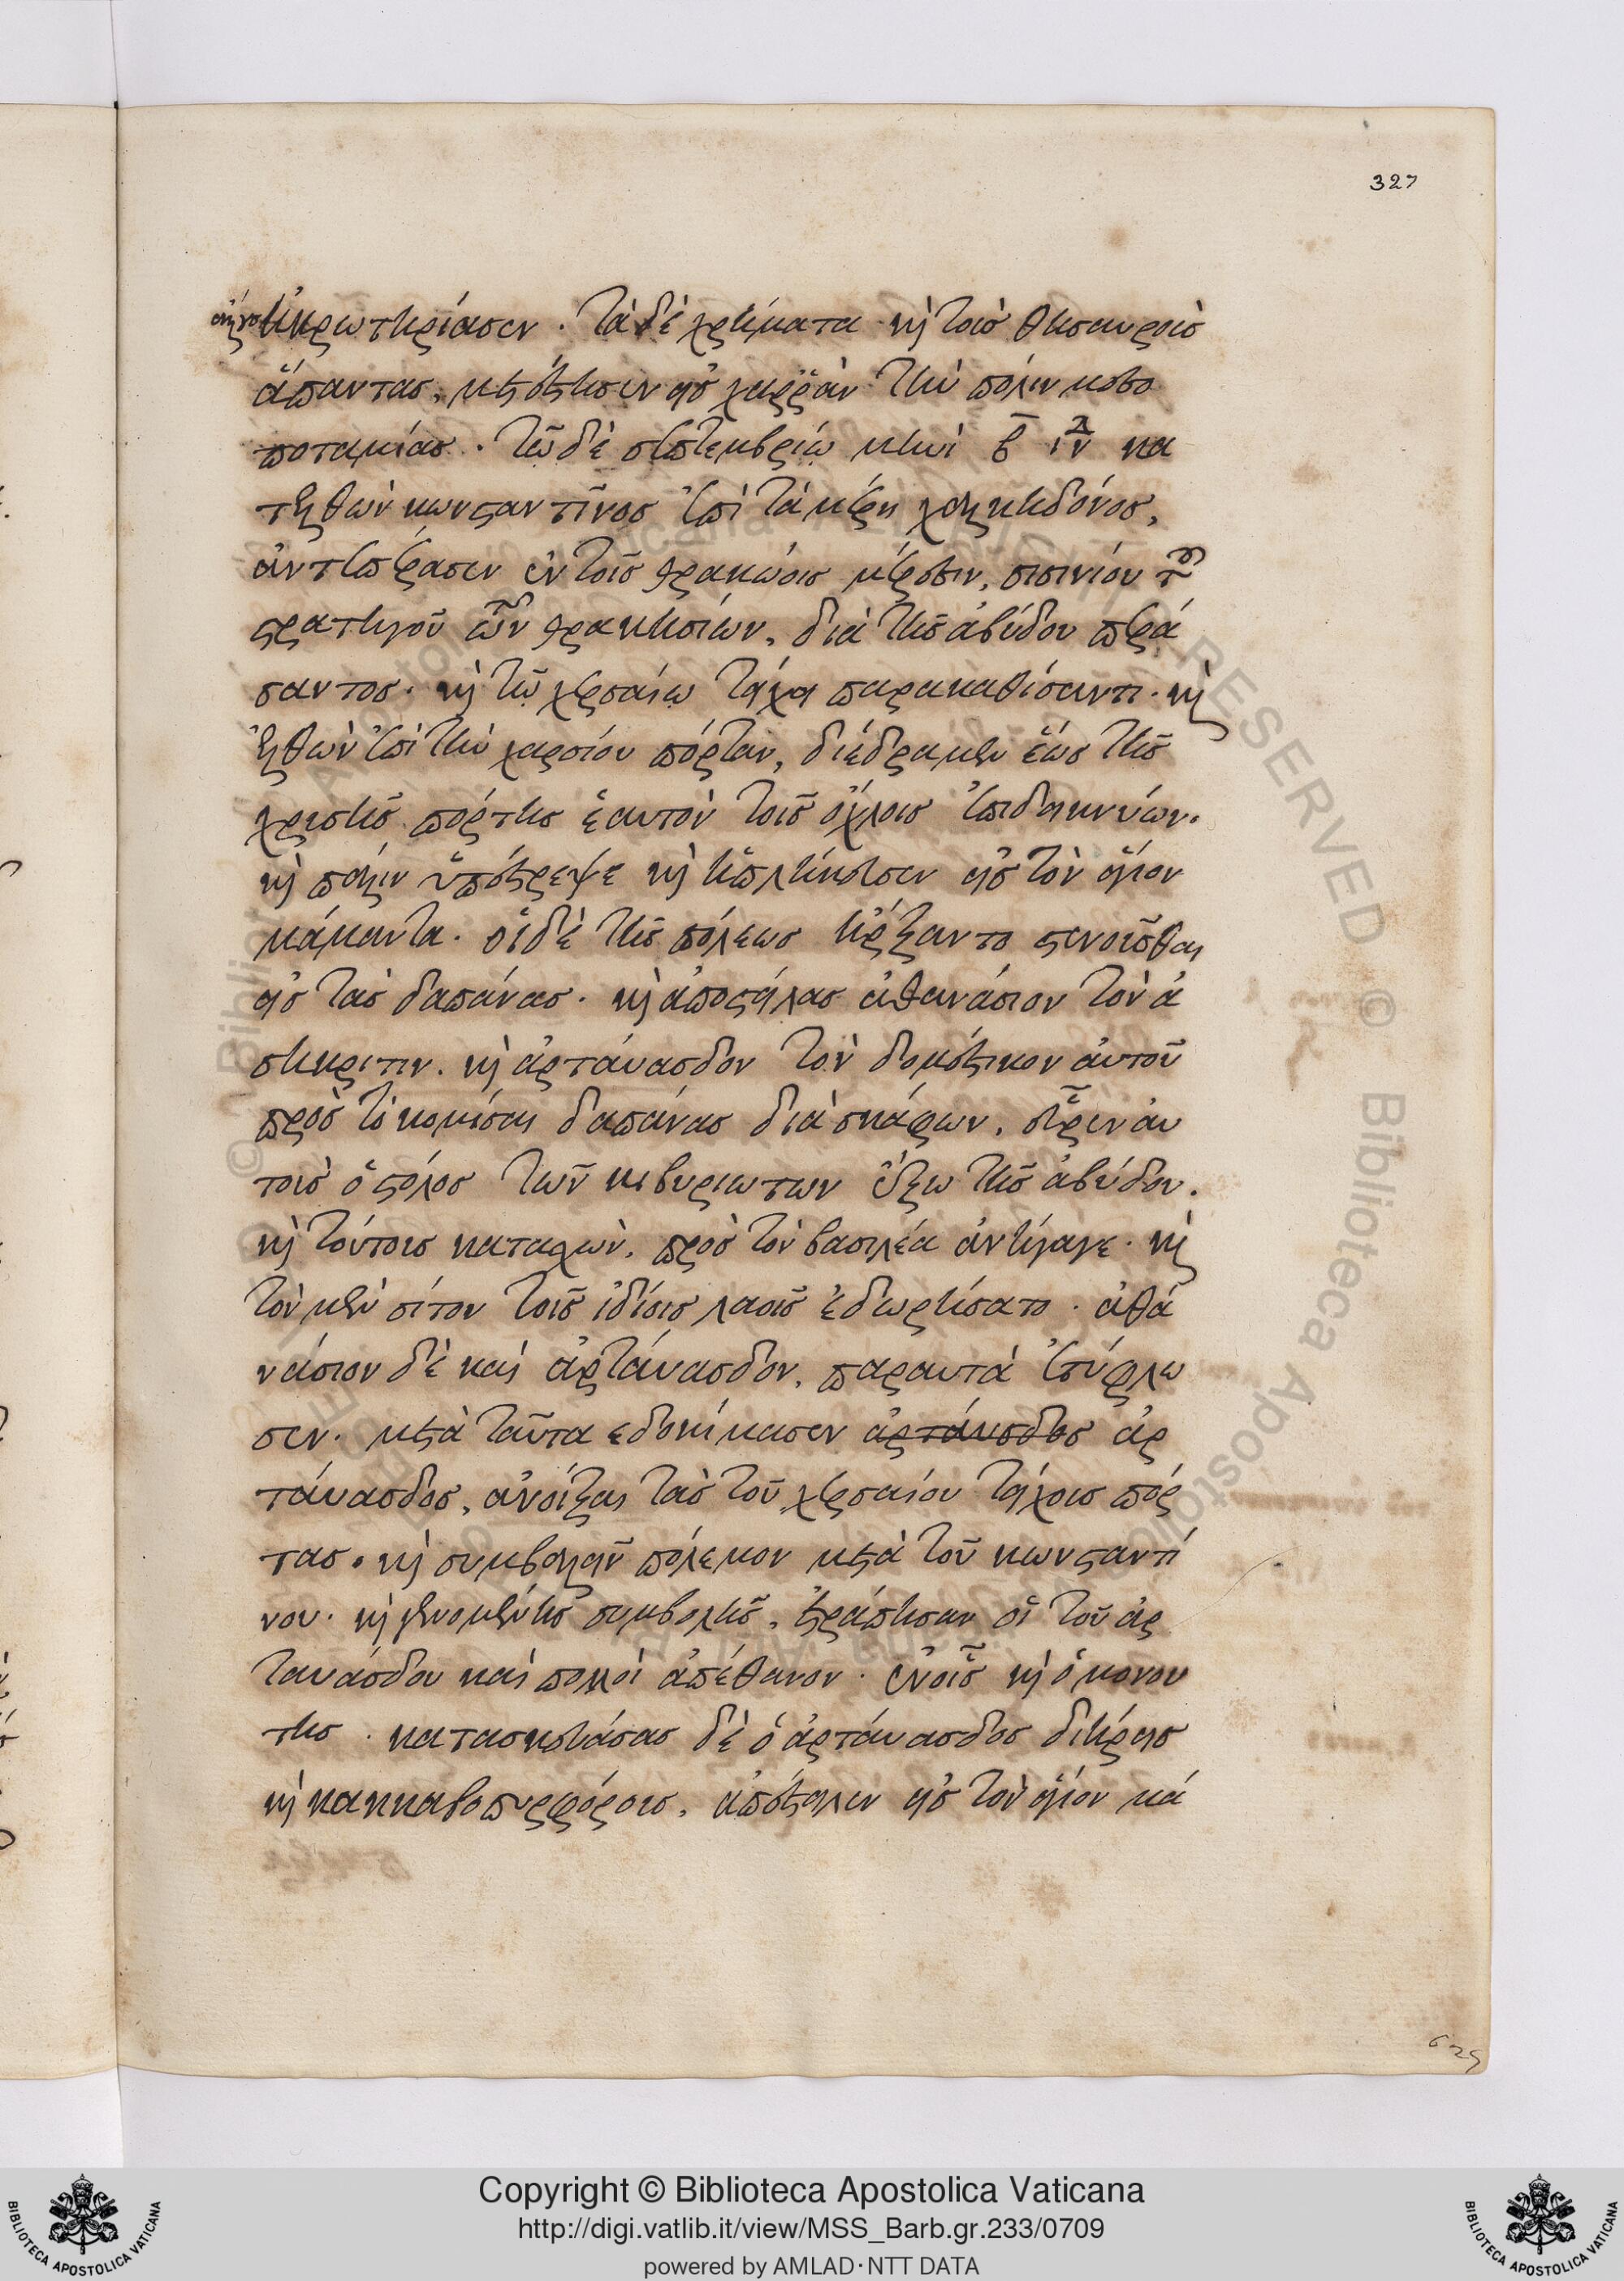 327
ἠκρωτηρίασεν · τὰ δὲ χρήματα καὶ τοὺς θησαυροὺς
ἅπαντας, μετέστησεν εἰς χαρρὰν τὴν πόλιν μεσο
ποταμίας · τῶ δὲ σεπτεμβρίω μηνὶ β̅ ἰν^δ κα
τελθὼν κωνσταντῖνος ἐπὶ τὰ μέρη χαλκηδόνος,
ἀντεπέρασεν ἐν τοῖς θρακώοις μέρεσιν, σισινίου τοῦ
στρατηγοῦ τῶν θρακησίων, διὰ τῆς ἀβύδου περά
σαντος · καὶ τῶ χερσαίω τείχει παρακαθίσαντι · καὶ
ἐλθὼν ἐπὶ τὴν χαρσίου πόρταν, διέδραμεν ἕως τῆς
χρυσῆς πόρτης ἑαυτὸν τοῖς ὄχλοις ἐπιδεικνύων.
καὶ πάλιν ὑπέστρεψε καὶ ἠπλήκευσεν εἰς τὸν ἅγιον
μάμαντα · οἱ δὲ τῆς πόλεως ἤρξαντο στενοῦσθαι
εἰς τὰς δαπάνας · καὶ ἀποστείλας ἀθανάσιον τὸν ἀ
σηκριτιν · καὶ ἀρτάυασδον τὸν δομέστικον αὐτοῦ
πρὸς τὸ κομίσαι δαπάνας διὰ σκάφων, εὗρεν αὐ
τοὺς ὁ στόλος τῶν κιβυριωτων ἔξω τῆς ἀβύδου.
καὶ τούτους κατασχὼν, πρὸς τὸν βασιλέα ἀντήγαγε · καὶ
τὸν μὲν σίτον τοῖς ἰδίοις λαοῖς ἐδωρήσατο · ἀθα
νάσιον δὲ καὶ ἀρτάυασδον, παραυτὰ ἐτύφλω
σεν · μετὰ ταῦτα εδοκίμασεν ἀρτάυσδος ἀρ
τάυασδος, ἀνοίξαι τὰς τοῦ χερσαίου τείχους πόρ
τας · καὶ συμβαλεῖν πόλεμον μετὰ τοῦ κωνσταντί
νου · καὶ γενομένης συμβολῆς, ἐτράπησαν οἱ τοῦ ἀρ
ταυάσδου καὶ πολλοὶ ἀπέθανον · ἐν οἷς καὶ ὁ μονου
της · κατασκευάσας δὲ ὁ ἀρτάυασδος διήρεις
καὶ κακκαβοπυρφόρους, ἀπέστειλεν εἰς τὸν ἅγιον μά
Copyright © Biblioteca Apostolica Vaticana
http://digi.vatlib.it/view/MSS_Barb.gr.233/0709
powered by AMLAD·NTT DATA